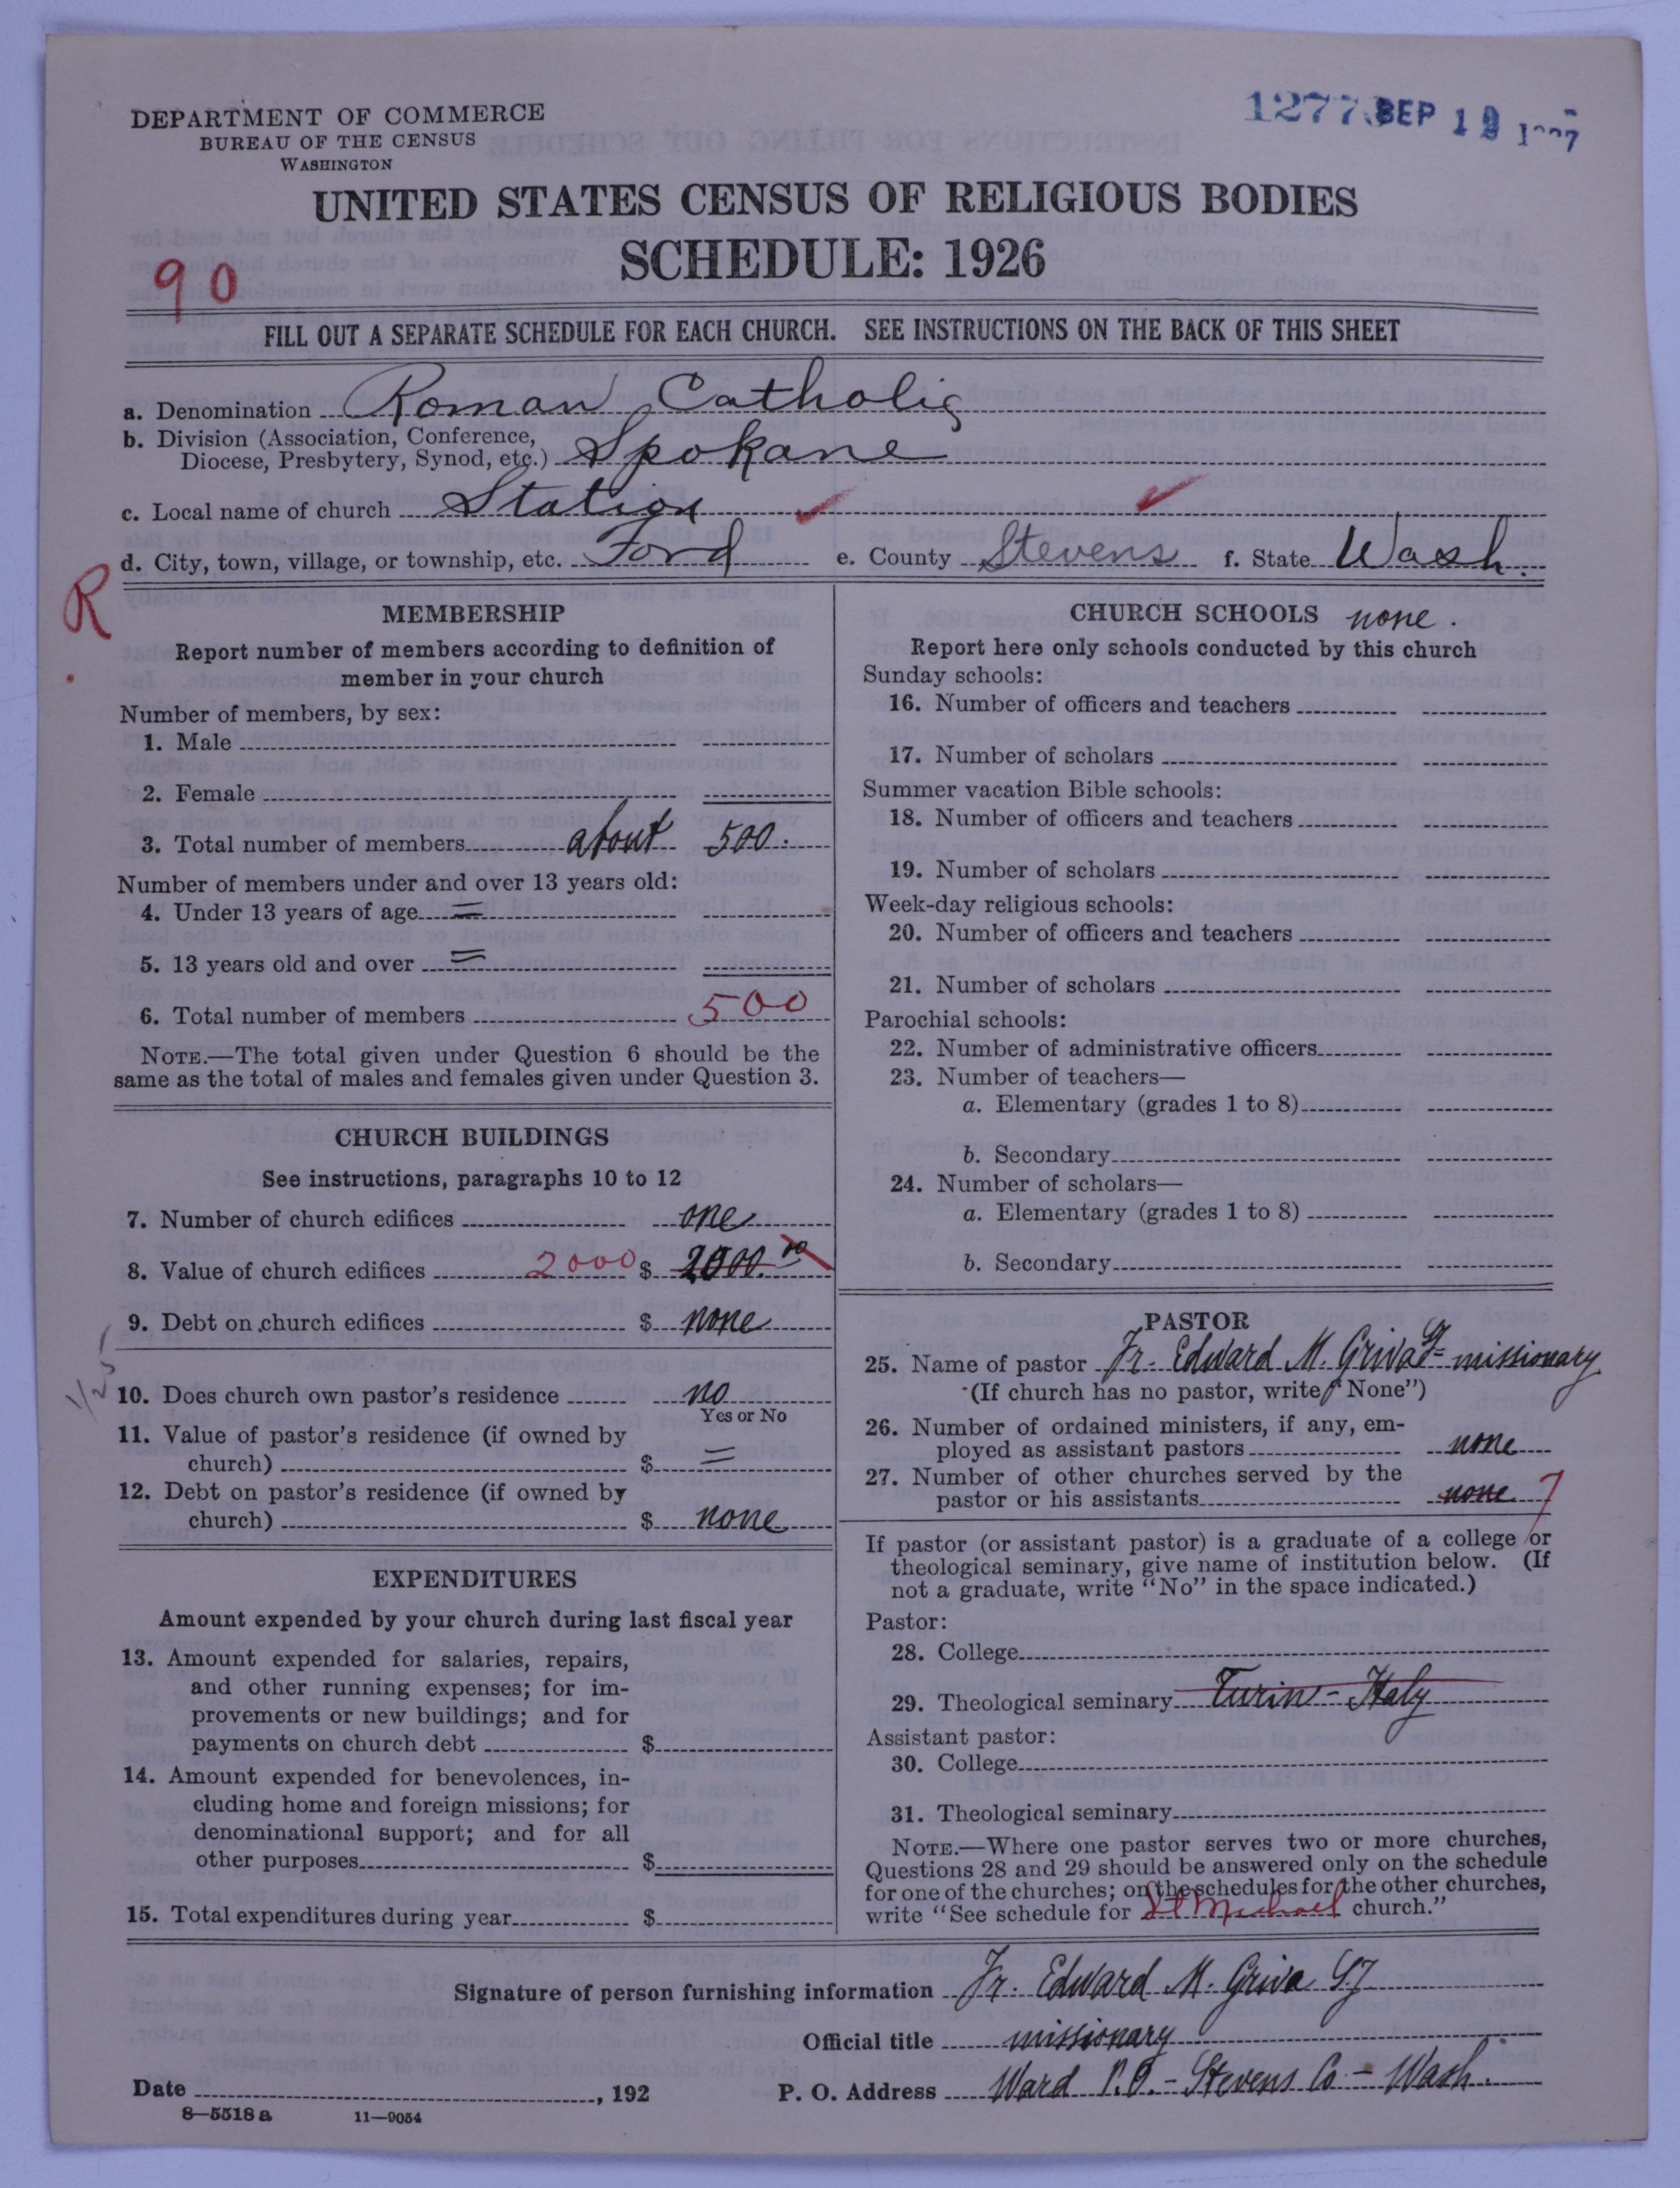 DEPARTMENT OF COMMERCE
BUREAU OF THE CENSUS
WASHINGTON
1277 SEP 19
UNITED STATES CENSUS OF RELIGIOUS BODIES
SCHEDULE: 1926
90
FILL OUT A SEPARATE SCHEDULE FOR EACH CHURCH. SEE INSTRUCTIONS ON THE BACK OF THIS SHEET
a. Denomination Roman Catholic
b. Division (Association, Conference,
Diocese, Presbytery, Synod, etc.) Spokane
c. Local name of church Station
d. City, town, village, or township, etc. Ford e. County Stevens f. State Wash.
R
MEMBERSHIP
Report number of members according to definition of
member in your church
Number of members, by sex:
1. Male
2. Female
3. Total number of members about 500.
Number of members under and over 13 years old:
4. Under 13 years of age =
5. 13 years old and over =
6. Total number of members 500
NOTE.—The total given under Question 6 should be the
same as the total of males and females given under Question 3.
CHURCH BUILDINGS
See instructions, paragraphs 10 to 12
7. Number of church edifices one
8. Value of church edifices 2000 $ 2000.
9. Debt on church edifices $ none
10. Does church own pastor's residence no
Yes or No
11. Value of pastor's residence (if owned by
church) $ =
12. Debt on pastor's residence (if owned by
church) $ none
EXPENDITURES
Amount expended by your church during last fiscal year
13. Amount expended for salaries, repairs,
and other running expenses; for im-
provements or new buildings; and for
payments on church debt $
14. Amount expended for benevolences, in-
cluding home and foreign missions; for
denominational support; and for all
other purposes $
15. Total expenditures during year $
CHURCH SCHOOLS none.
Report here only schools conducted by this church
Sunday schools:
16. Number of officers and teachers
17. Number of scholars
Summer vacation Bible schools:
18. Number of officers and teachers
19. Number of scholars
Week-day religious schools:
20. Number of officers and teachers
21. Number of scholars
Parochial schools:
22. Number of administrative officers
23. Number of teachers—
a. Elementary (grades 1 to 8)
b. Secondary
24. Number of scholars—
a. Elementary (grades 1 to 8)
b. Secondary
PASTOR
25. Name of pastor Fr. Edward M. Griva SJ= missionary
(If church has no pastor, write "None")
26. Number of ordained ministers, if any, em-
ployed as assistant pastors none
27. Number of other churches served by the
pastor or his assistants none 7
If pastor (or assistant pastor) is a graduate of a college or
theological seminary, give name of institution below. (If
not a graduate, write "No" in the space indicated.)
Pastor:
28. College
29. Theological seminary Turin - Italy
Assistant pastor:
30. College
31. Theological seminary
NOTE.—Where one pastor serves two or more churches,
Questions 28 and 29 should be answered only on the schedule
for one of the churches; on the schedules for the other churches,
write "See schedule for St Michael church."
Signature of person furnishing information Fr. Edward M. Griva SJ
Official title missionary
Date , 192 P. O. Address Ward P.O. - Stevens Co - Wash.
8—5518 a 11—9054